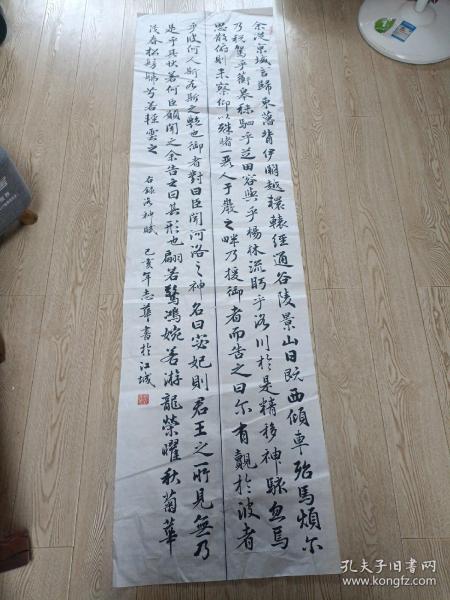 余從京域言歸東藩背伊闕越轘轅經通谷陵景山日既西傾車殆馬煩尔
乃税駕乎蘅皋秣駟乎芝田容與乎楊林流眄乎洛川於是精移神駭忽焉
思散俯則未察仰以殊睹一麗人于巖之畔乃援御者而告之曰尔有覿於彼者
乎彼何人斯若斯之艷也御者對曰臣聞河洛之神名曰宓妃則君王之所見無乃
是乎其狀若何臣願聞之余告之曰其形也翩若驚鴻婉若游龍榮曜秋菊華
茂春松髣髴兮若輕雲之
右錄洛神賦
己亥年志華書於江城
孔夫子旧书网
www.kongfz.com